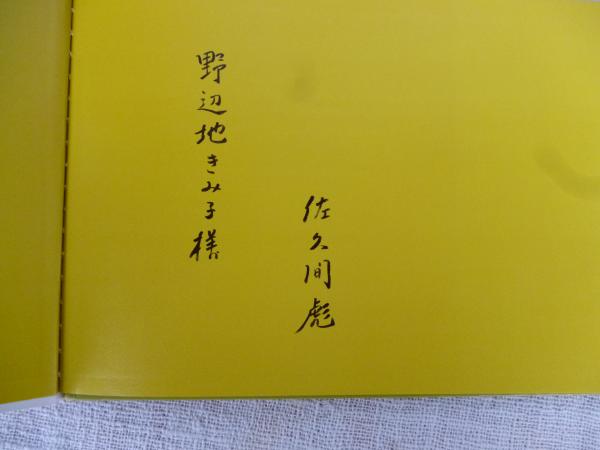 佐久間彪
野辺地きみ子様